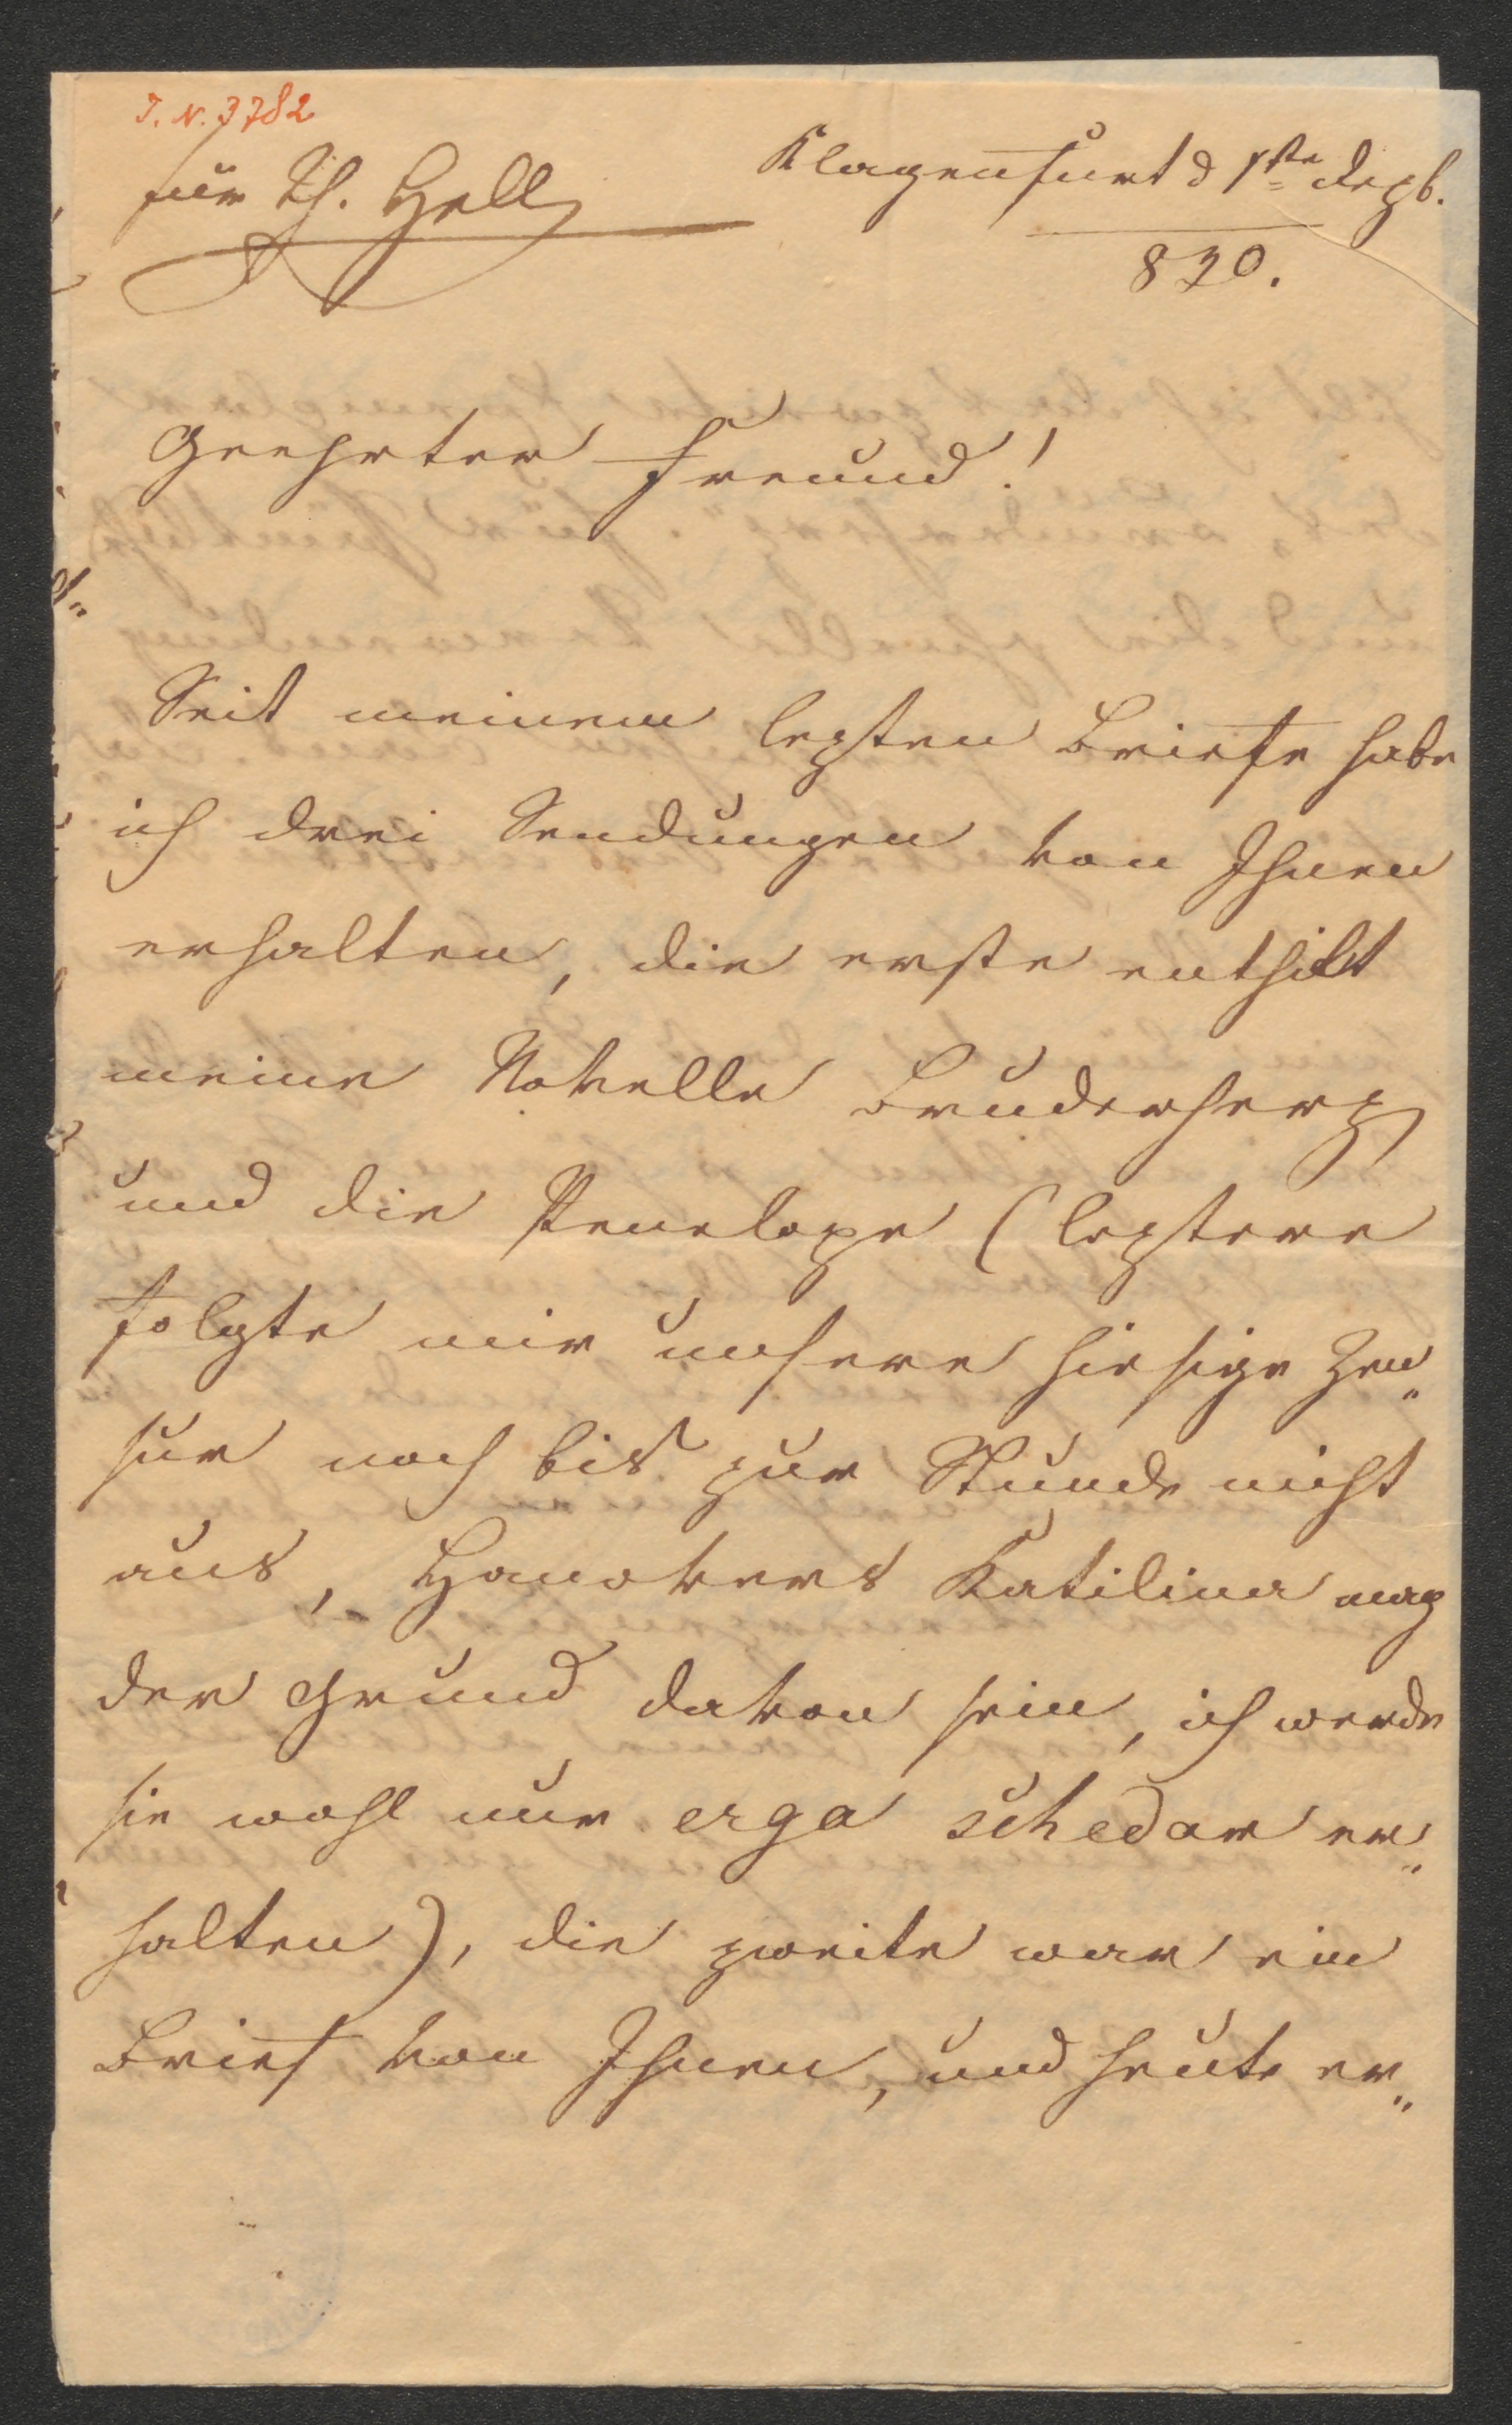 I. N. 3782
für Th. Hell
Klagenfurt d 1ste Dezb.
830.
Geehrter Freund!
Seit meinem letzten Briefe habe
ich drei Sendungen von Ihnen
erhalten, die erste enthält
meine Novelle Bruderherz
und die Penelope (letztere
folgte mir unsere hiesige Zen„
sur noch bis zur Stunde nicht
aus, Hanovers Katilina mag
der Grund davon sein, ich werde
sie wohl nur erga schedam er„
halten), die zweite war ein
Brief von Ihnen, und heute er„